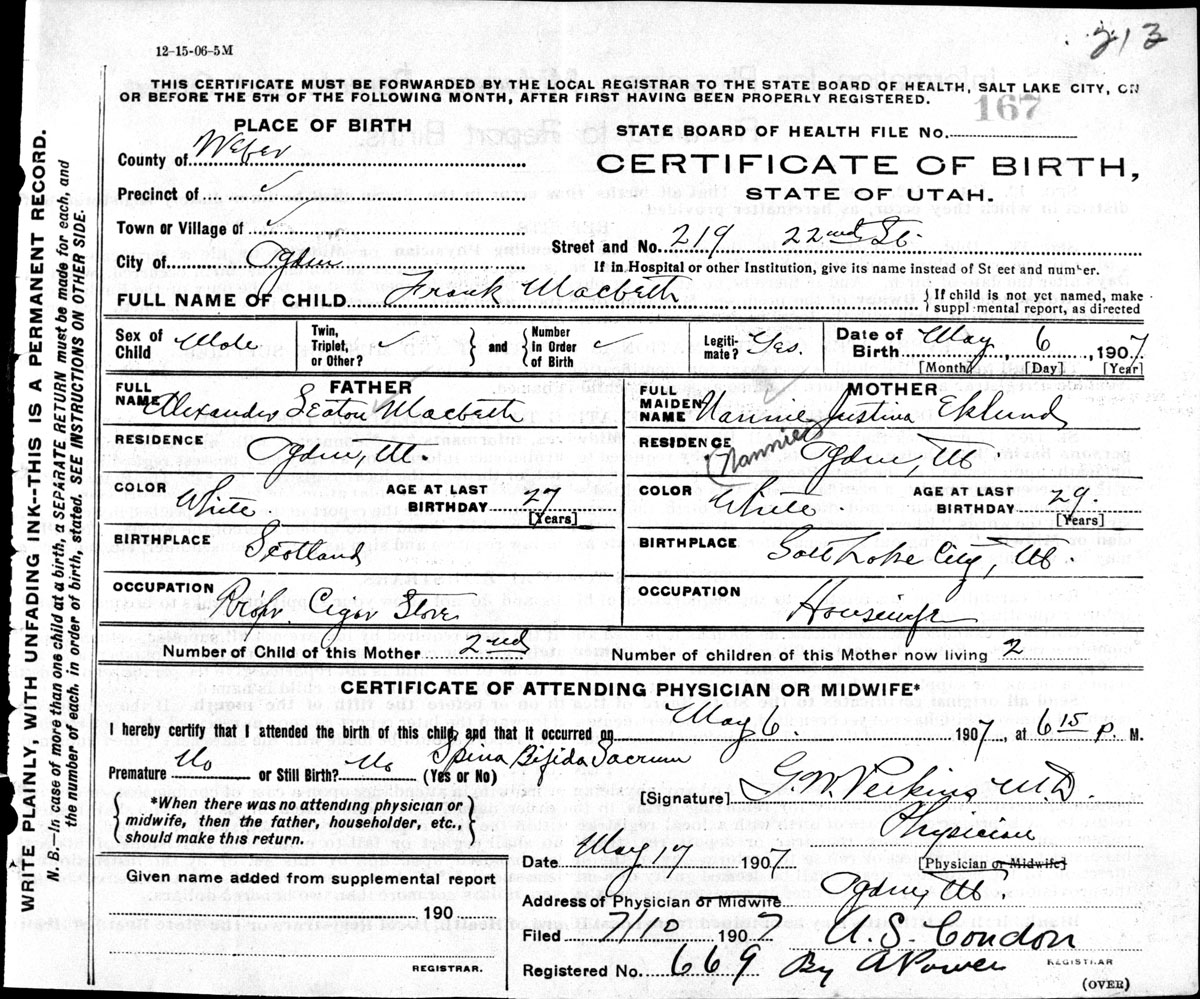 213
12-15-06-5M
THIS CERTIFICATE MUST BE FORWARDED BY THE LOCAL REGISTRAR TO THE STATE BOARD OF HEALTH, SALT LAKE CITY, ON
OR BEFORE THE 5TH OF THE FOLLOWING MONTH, AFTER FIRST HAVING BEEN PROPERLY REGISTERED.
167
PLACE OF BIRTH
STATE BOARD OF HEALTH FILE No.
County of Weber
CERTIFICATE OF BIRTH,
Precinct of ✓
STATE OF UTAH.
Town or Village of ✓
Street and No. 219 22nd St.
City of Ogden
If in Hospital or other Institution, give its name instead of St eet and number.
FULL NAME OF CHILD Frank Macbeth
If child is not yet named, make
suppl mental report, as directed
Sex of Child Male
Twin, Triplet, or Other? ✓ and Number in Order of Birth ✓
Legiti-mate? Yes.
Date of Birth May 6, 1907
[Month] [Day] [Year]
FATHER
FULL NAME Alexander Seaton Macbeth
MOTHER
FULL MAIDEN NAME Nannie Justina Eklund
(Nannie)
RESIDENCE Ogden, Ut.
RESIDENCE Ogden, Ut
COLOR White AGE AT LAST BIRTHDAY 27
[Years]
COLOR White AGE AT LAST BIRTHDAY 29.
[Years]
BIRTHPLACE Scotland
BIRTHPLACE Salt Lake City, Ut.
OCCUPATION Propr. Cigar Store
OCCUPATION Housewife
Number of Child of this Mother 2nd
Number of children of this Mother now living 2
CERTIFICATE OF ATTENDING PHYSICIAN OR MIDWIFE*
I hereby certify that I attended the birth of this child, and that it occurred on May 6. 1907, at 6 15 P. M.
Spina Bifida Sacrum
Premature No or Still Birth? No (Yes or No)
[Signature] G. W. Perkins M.D.
*When there was no attending physician or
midwife, then the father, householder, etc.,
should make this return.
Physician
[Physician or Midwife]
Date May 1907
Given name added from supplemental report
Ogden, Ut
Address of Physician or Midwife.
190
Filed 7/10 1907
A. S. Condon
REGISTRAR.
Registered No. 669
By A Power
REGISTRAR
(OVER)
WRITE PLAINLY, WITH UNFADING INK--THIS IS A PERMANENT RECORD.
N. B.--In case of more than one child at a birth, a SEPARATE RETURN must be made for each, and
the number of each, in order of birth, stated. SEE INSTRUCTIONS ON OTHER SIDE.